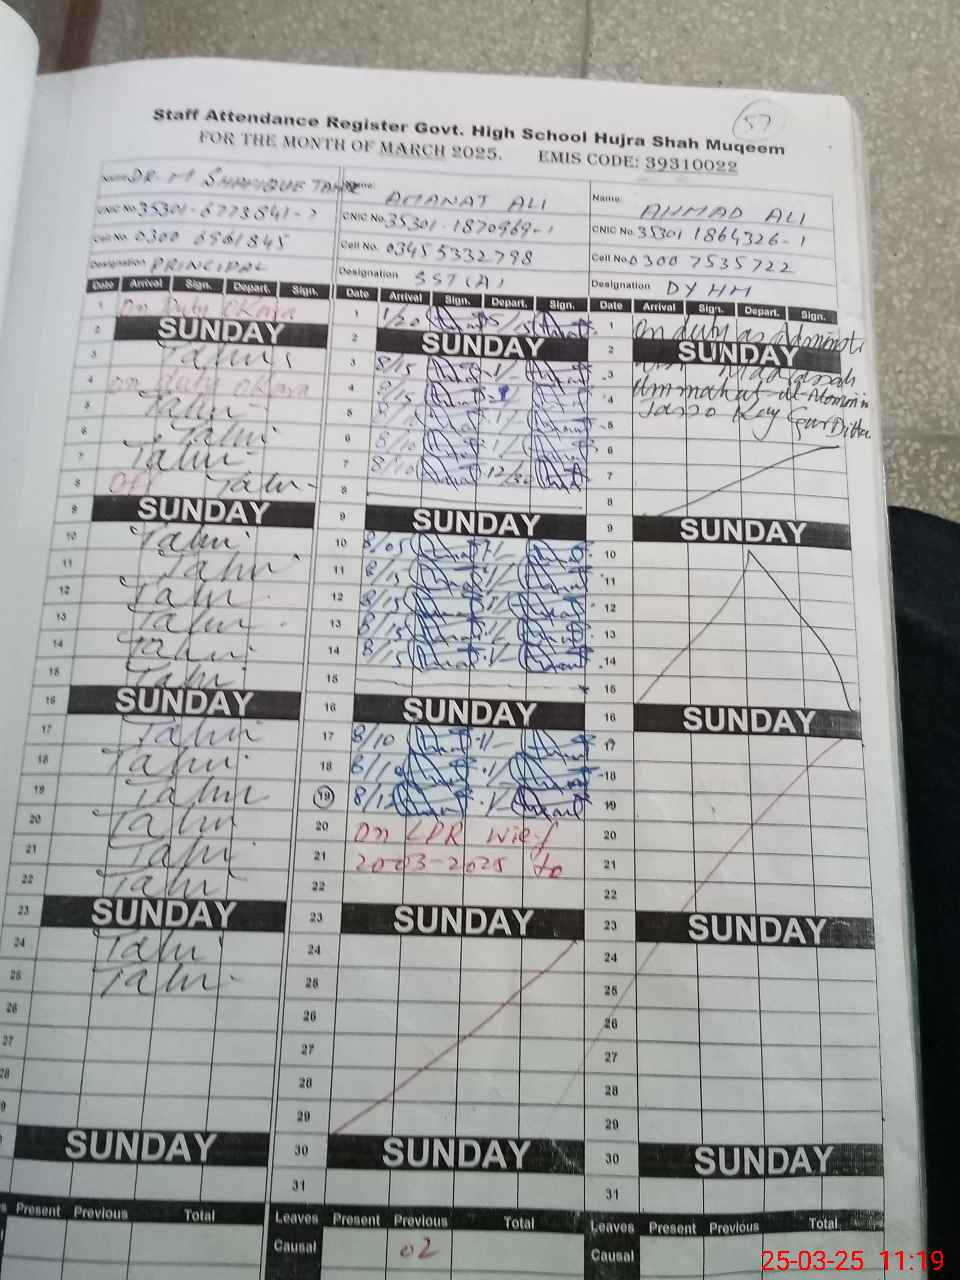 57
Staff Attendance Register Govt. High School Hujra Shah Muqeem
FOR THE MONTH OF MARCH 2025. EMIS CODE: 39310022
Name DR M SHAFIQUE TAHIR
CNIC No. 35301-6773841-7
Cell No. 0300 6961845
Designation PRINCIPAL
Date Arrival Sign. Depart. Sign.
1 On Duty Okara
2 SUNDAY
3 Tahir
4 on duty okara
5 Tahir
6 Tahir
7 Tahir
8 Off Tahir
9 SUNDAY
10 Tahir
11 Tahir
12 Tahir
13 Tahir
14 Tahir
15 Tahir
16 SUNDAY
17 Tahir
18 Tahir
19 Tahir
20 Tahir
21 Tahir
22 Tahir
23 SUNDAY
24 Tahir
25 Tahir
26
27
28
SUNDAY
Present Previous Total
Name: AMANAT ALI
CNIC No. 35301-1870969-1
Cell No. 0345 5332798
Designation SST(A)
Date Arrival Sign. Depart. Sign.
1
2 SUNDAY
3 8/15
4 8/15
5 8/15
6 8/10
7 8/10 12/30
8
9 SUNDAY
10 8/05
11 8/15
12 8/15
13 8/15
14 8/15
15
16 SUNDAY
17 8/10
18 8/10
19 8/12
20 on LPR w.e.f
21 20-03-2025 to
22
23 SUNDAY
24
25
26
27
28
29
30 SUNDAY
31
Leaves Present Previous Total
Causal 02
Name AHMAD ALI
CNIC No. 35301 1864326-1
Cell No. 0300 7535722
Designation DY HM
Date Arrival Sign. Depart. Sign.
1 On duty as Administ
2 SUNDAY
3 Madrassah
4 Ummahat-ul-Momin
5 Jasso Key Gur Ditta
6
7
8
9 SUNDAY
10
11
12
13
14
15
16 SUNDAY
17
18
19
20
21
22
23 SUNDAY
24
25
26
27
28
29
30 SUNDAY
31
Leaves Present Previous Total
Causal
25-03-25 11:19